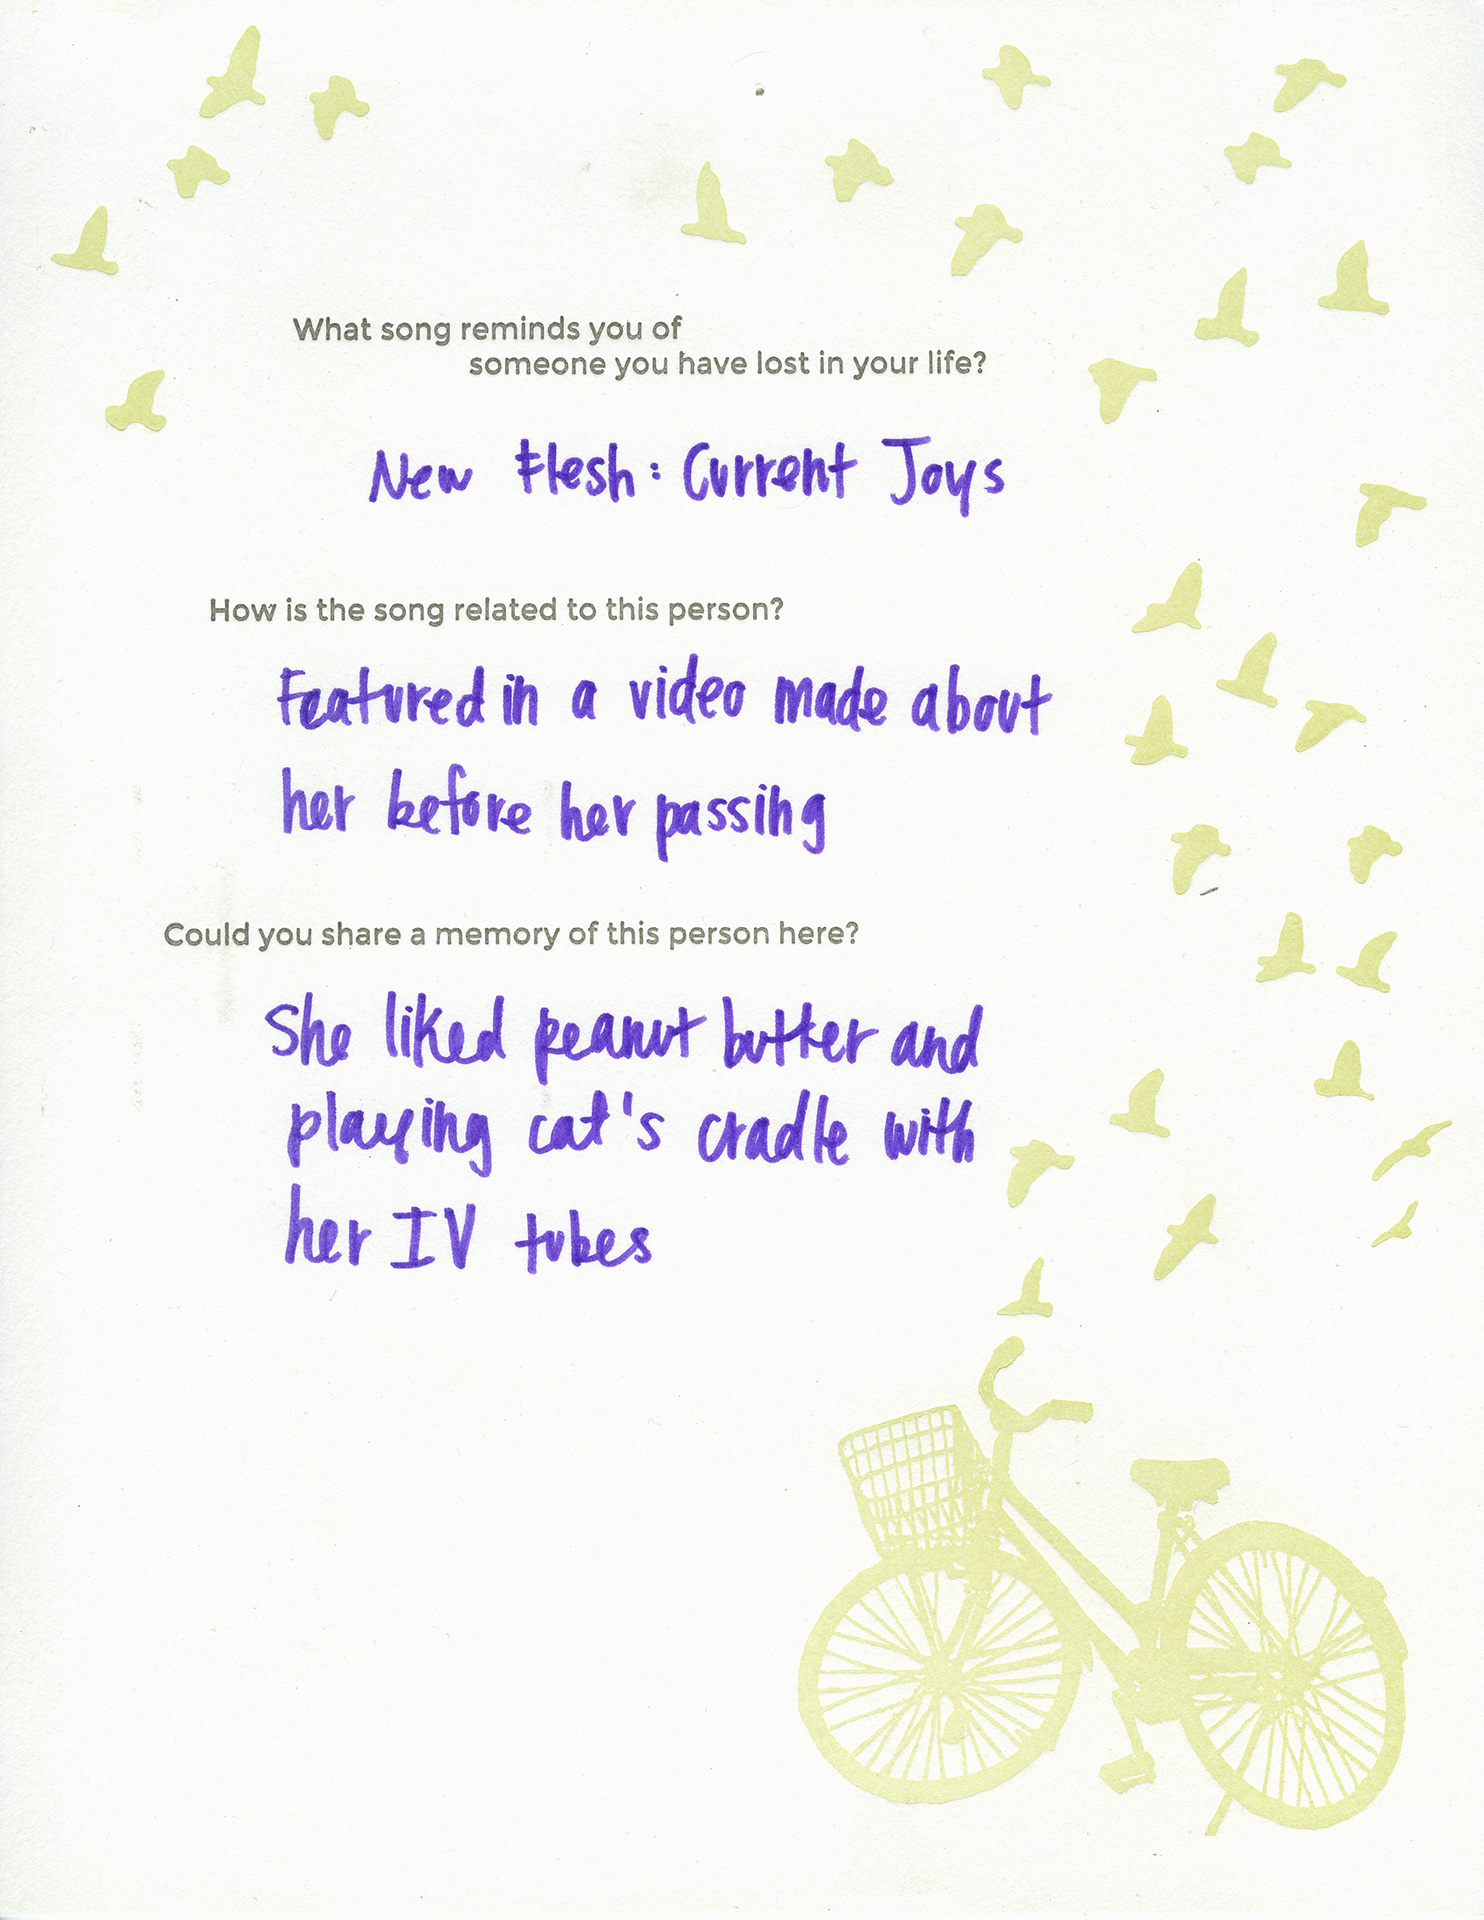 What song reminds you of
someone you have lost in your life?
New Flesh: Current Joys
How is the song related to this person?
Featured in a video made about
her before her passing
Could you share a memory of this person here?
She liked peanut butter and
playing cat's cradle with
her IV tubes